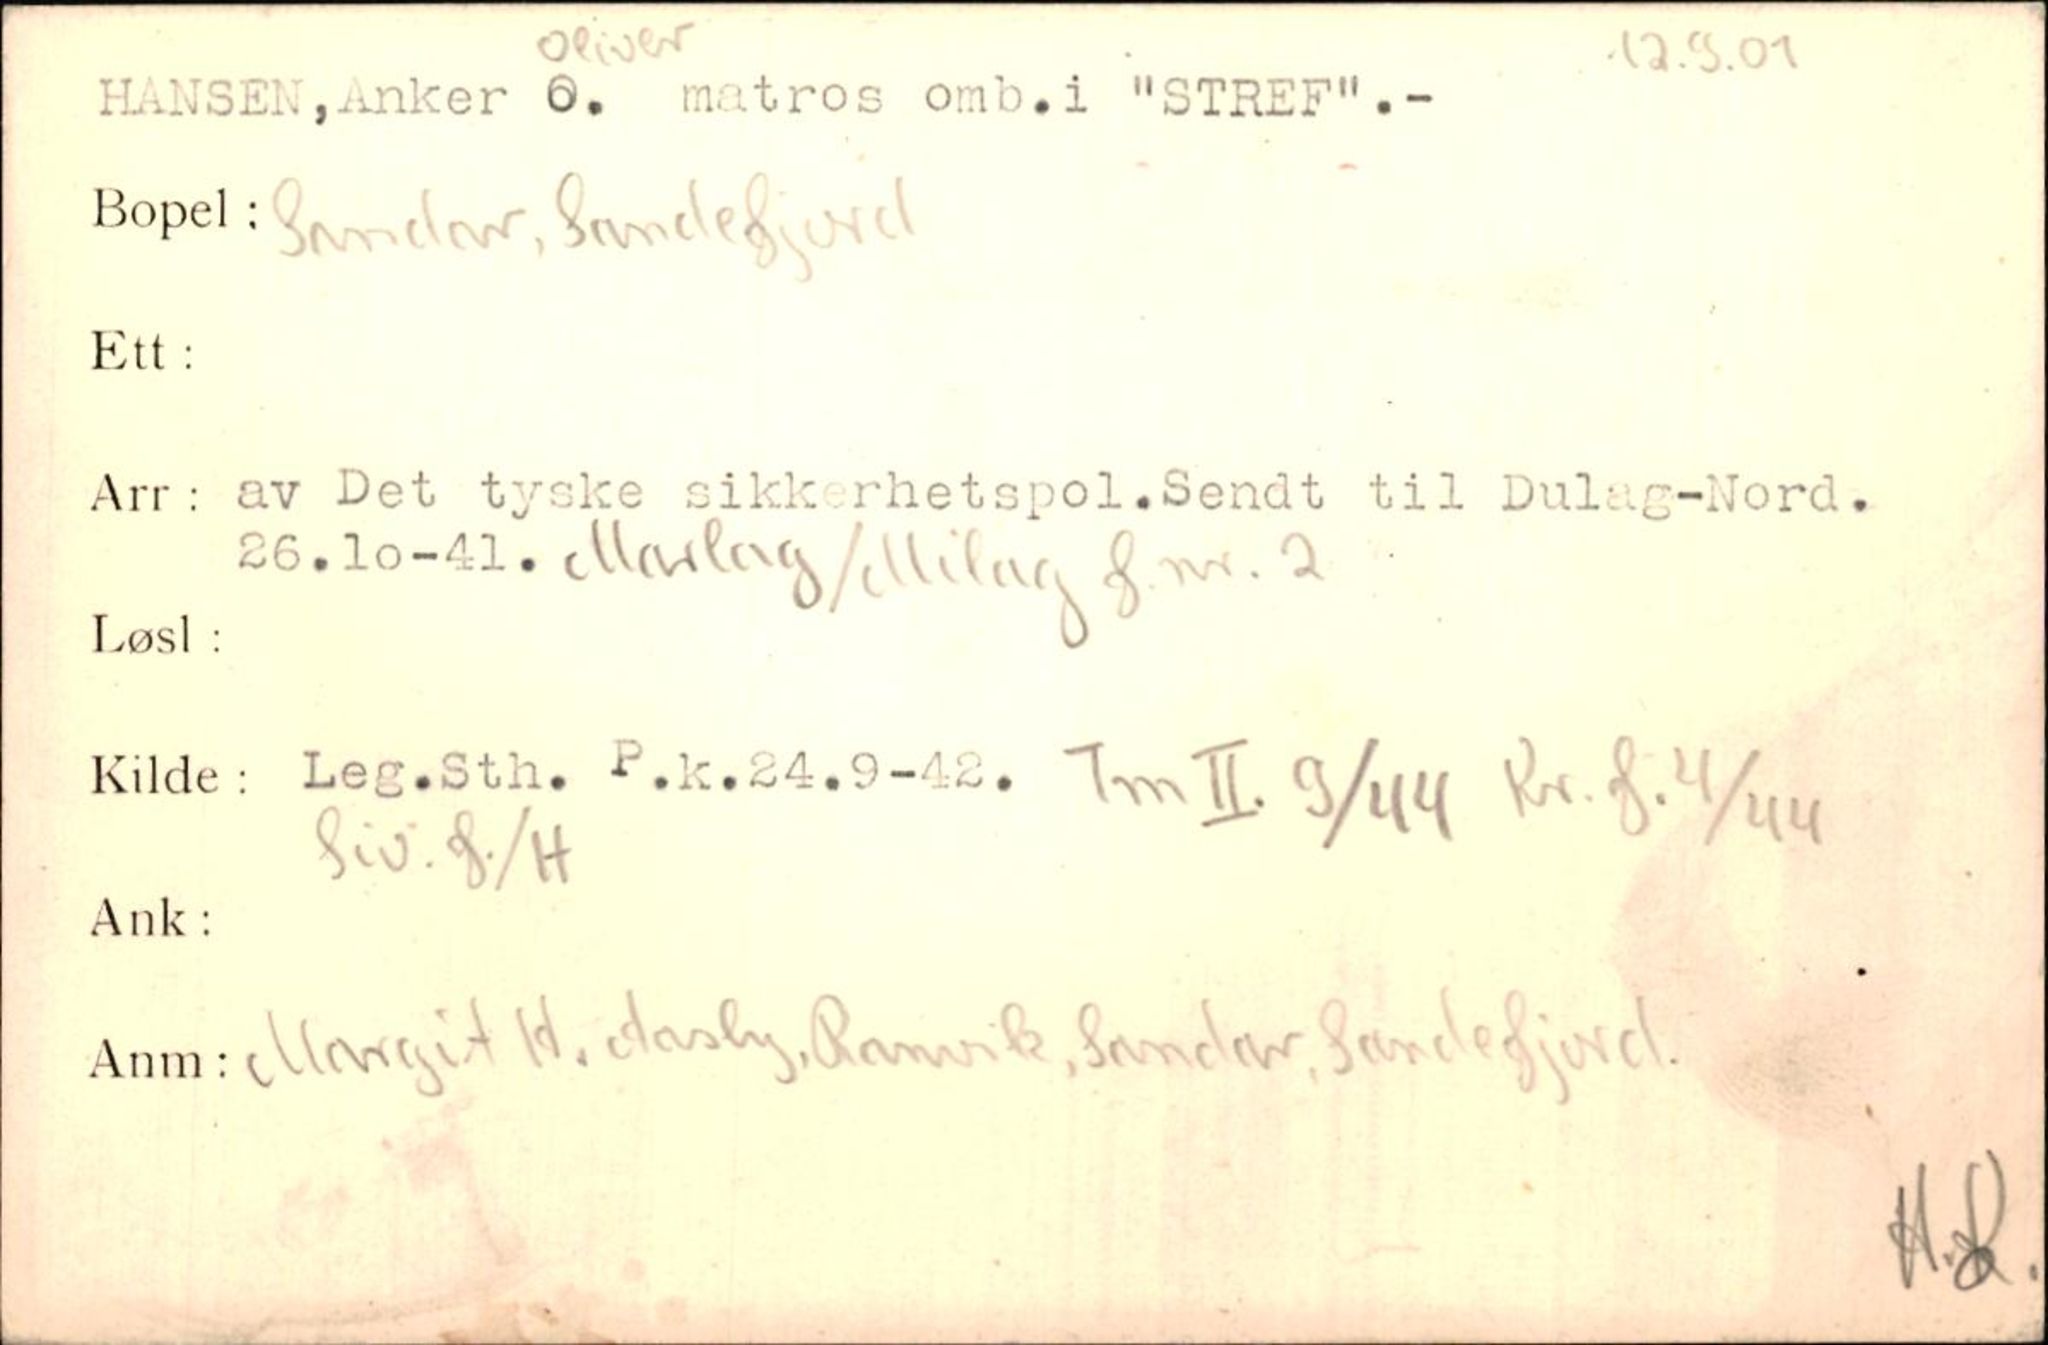 Oliver 12.9.01
HANSEN,Anker O. matros omb.i "STREF".-
Bopel : Sandar, Sandefjord
Ett :
Arr : av Det tyske sikkerhetspol.Sendt til Dulag-Nord.
26.lo-41. Marlag/Milag f.nr. 2
Løsl :
Kilde : Leg.Sth. P.k.24.9-42. Tm II. 9/44 Kr. f. 4/44
Siv. f./H
Ank :
Anm : Margit H. Aasly, Ranvik, Sandar, Sandefjord.